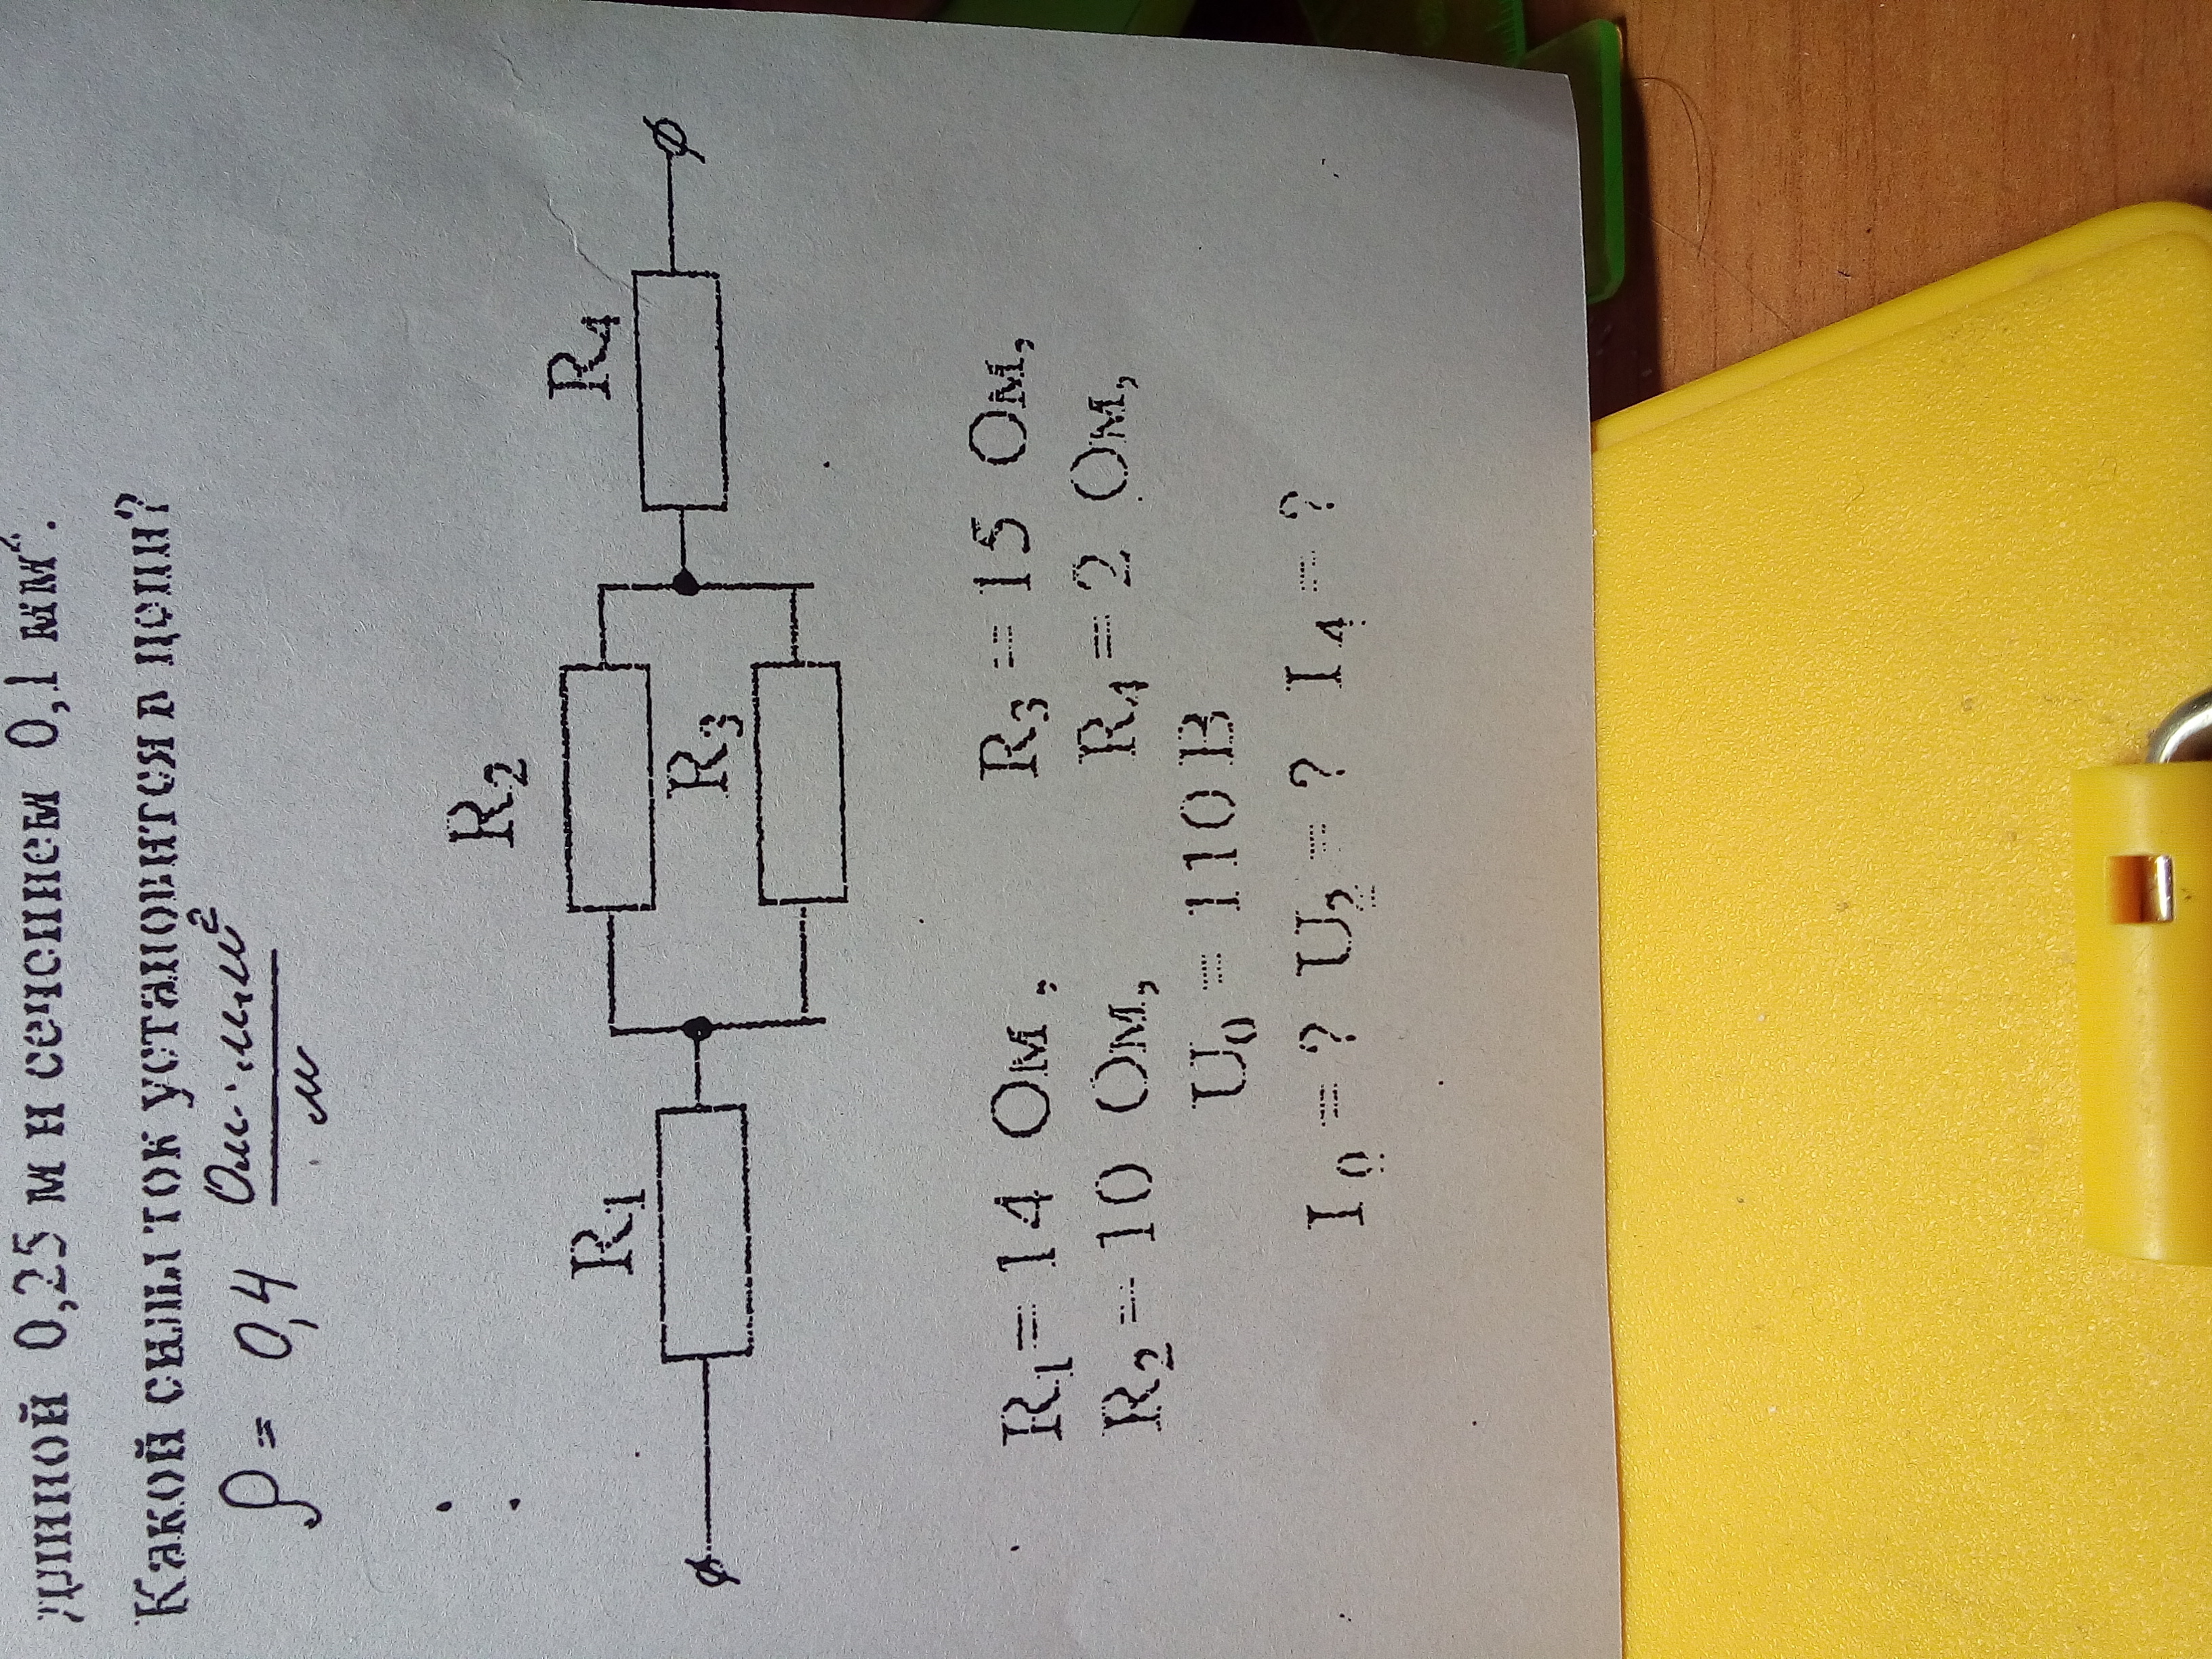 длиной 0,25 м и сечением 0,1 мм².
Какой силы ток установится в цепи?
ρ = 0,4 Ом·мм²/м
R₂
R₁
R₃
R₄
R₁ = 14 Ом, R₃ = 15 Ом,
R₂ = 10 Ом, R₄ = 2 Ом,
U₀ = 110 В
I₀ = ? U₂ = ? I₄ = ?